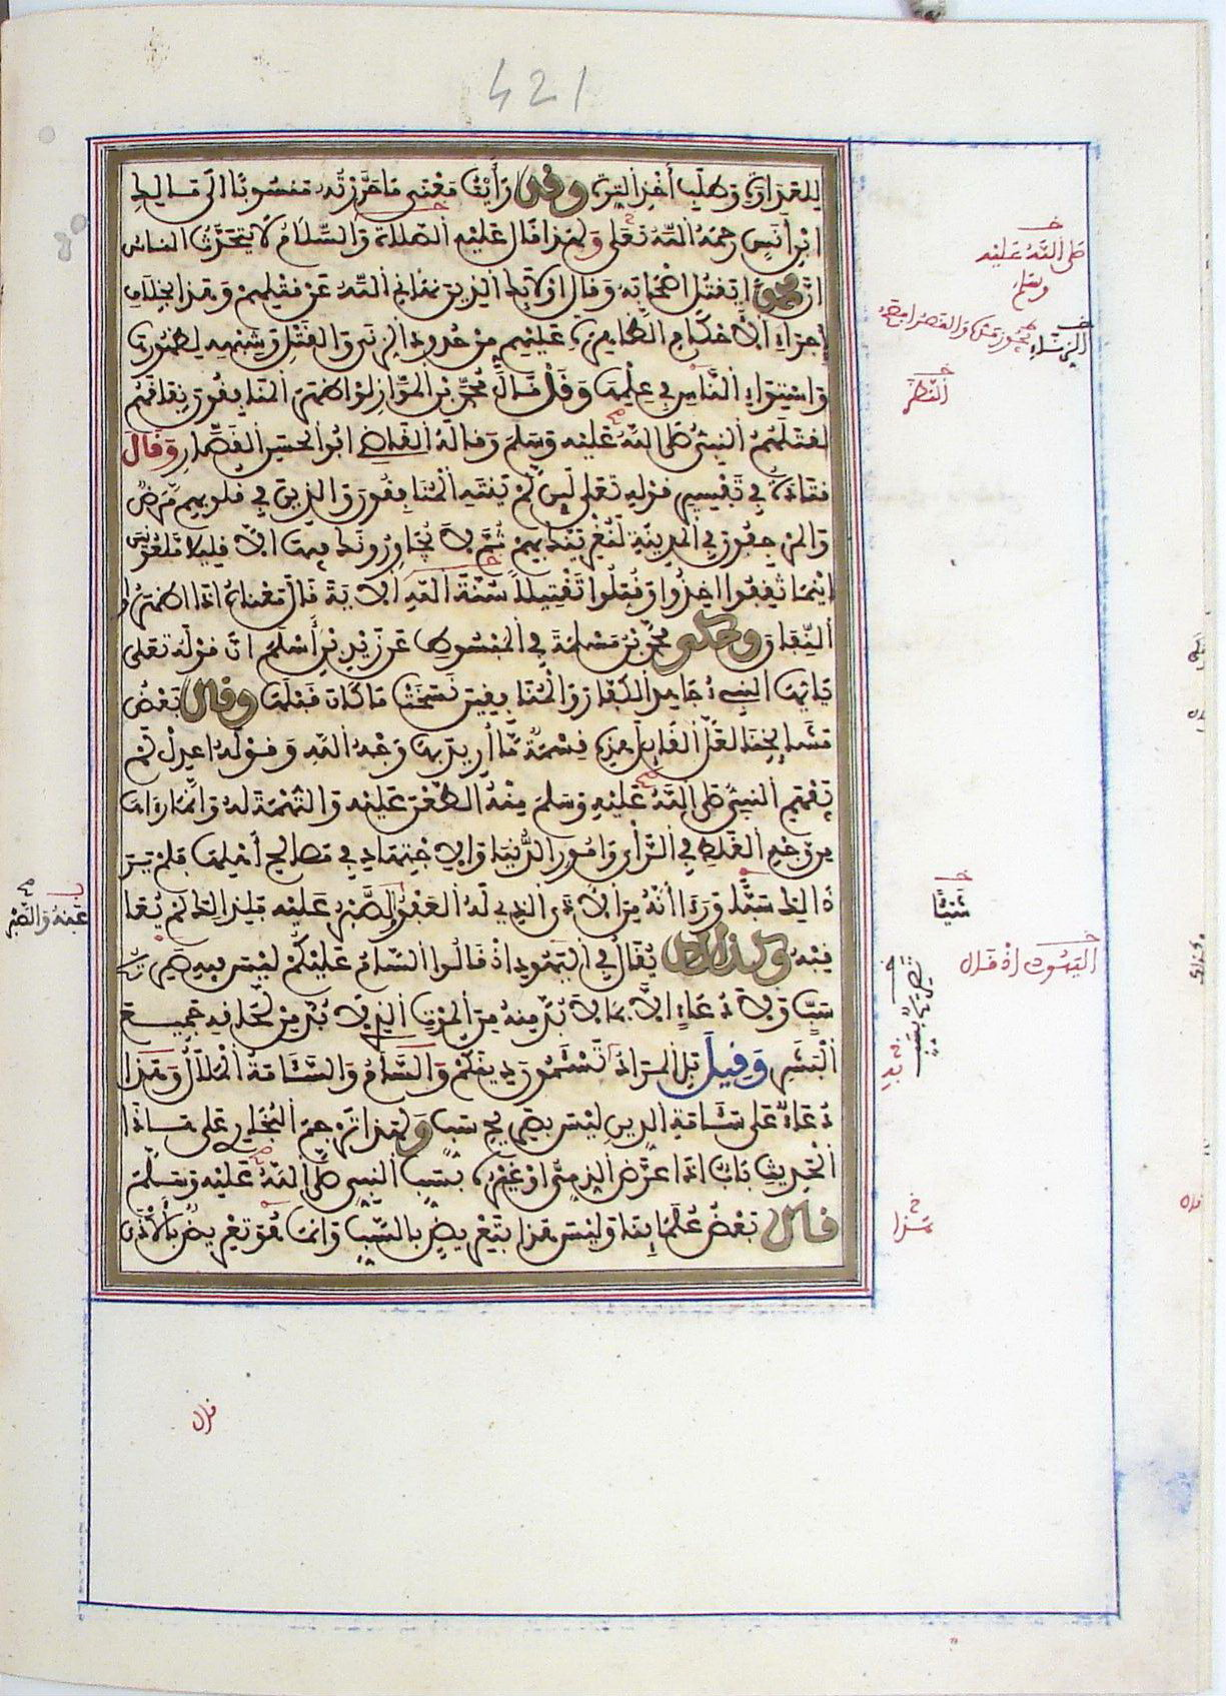 421
للعداوة وطلب أخذ الترة وقد رأيت معنى ما حررته منسوبا الى مالك
ابن أنس رحمه الله تعلى ولهذا قال عليه الصلاة والسلام لا يتحدث الناس
ان محمدا يقتل اصحابه وقال اولايك الذين نهاني الله عن قتلهم وهذا بخلاف
إجراء الأحكام الظاهرة عليهم من حدود الزنى والقتل وشبهه لظهورها
واستواء الناس في علمها وقد قال محمد بن المواز لو اظهر المنافقون نفاقهم
لقتلهم النبي صلى الله عليه وسلم وقاله القاضي ابو الحسن القصار وقال
قتادة في تفسير قوله تعلى لين لم ينته المنافقون والذين في قلوبهم مرض
والمرجفون في المدينة لنغرينك بهم ثم لا يجاورونك فيها الا قليلا ملعونين
اينما ثقفوا اخذوا وقتلوا تقتيلا سنة الله الاية قال معناه اذا اظهروا
النفاق وحكى محمد بن مسلمة في المبسوط عن زيد بن أسلم ان قوله تعلى
يايها النبيء جاهد الكفار والمنافقين نسختها ما كان قبلها وقال بعض
مشايخنا لعل القايل هذه قسمة ما أريد بها وجه الله وقوله اعدل لم
يفهم النبي صلى الله عليه وسلم منه الطعن عليه والتهمة له وانما رءاها
من وجه الغلط في الرأي وامور الدنيا والاجتهاد في مصالح أهلها فلم ير
ذالك سبا ورءا انه من الاذى الذي له العفو عنه والصبر عليه فلذالك لم يعا
قبه وكذالك يقال في اليهود اذ قالوا السام عليكم ليس فيه صريح
سب ولا دعاء الا بما لا بد منه من الموت الذي لا بد من لحاقه جميع
البشر وقيل بل المراد تسئمون دينكم والسأم والسئامة الملال وهذا
دعاء على سئامة الدين ليس بصريح سب ولهذا ترجم البخاري على هاذا
الحديث باب اذا عرض الذمي او غيره بسب النبي صلى الله عليه وسلم
قال بعض علماينا وليس هذا بتعريض بالسب وانما هو تعريض بالأذى
صلى الله عليه
وسلم
النظر
شيئا
اليهود اذ قال
هذا
عنه والصبر
قال